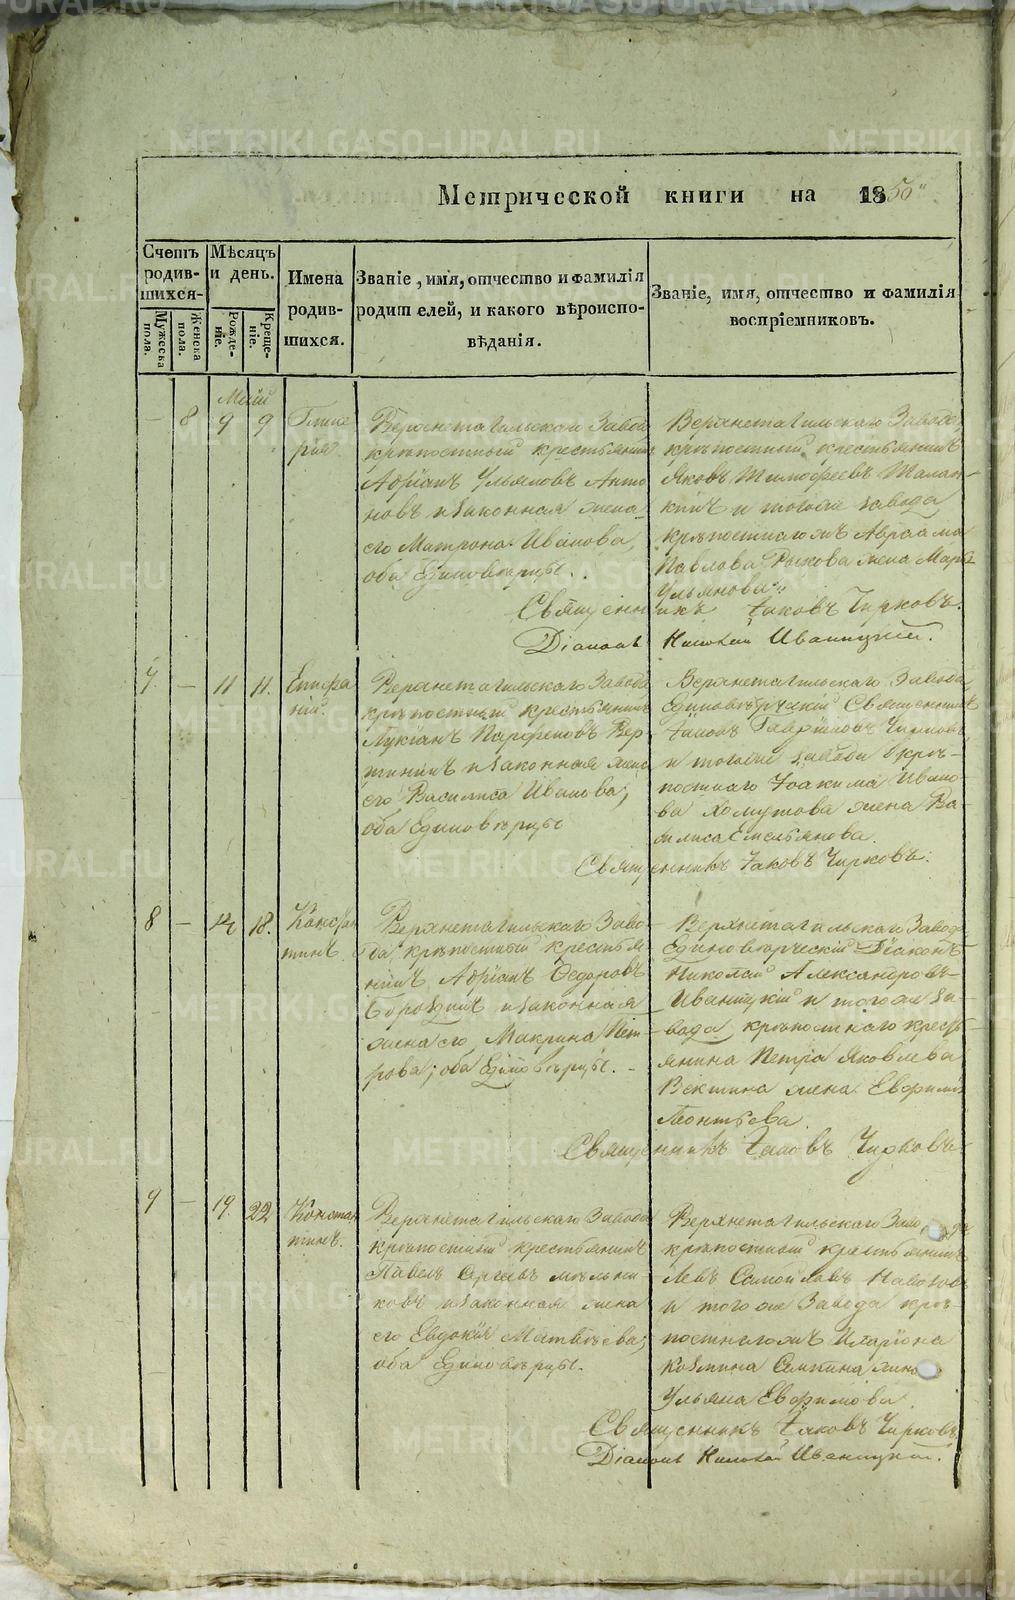 Метрической книги на 1850"
Счетъ родившихся.
Мужеска пола.
Женска пола.
Мѣсяцъ и день.
Рожденіе.
Крещеніе.
Имена родившихся.
Званіе, имя, отчество и фамилія
родителей, и какого вѣроиспо-
вѣданія.
Званіе, имя, отчество и фамилія
воспріемниковъ.
Май
— 8 9 9
Глике
рія
Верхнетагильскаго Завода
крѣпостный крестьянинъ
Адріанъ Ульяновъ Анто
новъ и законная жена
его Матрона Иванова,
оба Единовѣрцы.
Верхнетагильскаго Завода
крѣпостный крестьянинъ
Яковъ Тимофеевъ Талан-
кинъ и тогоже завода
крѣпостнагожъ Авраама
Павлова Рыкова жена Марѳа
Ульянова.
Священникъ Іаковъ Чирковъ.
Діаконъ Николай Иваницкій.
7. — 11 11.
Епифа
ній.
Верхнетагильскаго Завода
крѣпостный крестьянинъ
Лукіанъ Парфеновъ Вер
тининъ и законная жена
его Василиса Иванова;
оба Единовѣрцы
Верхнетагильскаго Завода
Единовѣрческій Священникъ
Іаковъ Гавріиловъ Чирковъ
и тогоже завода крѣ-
постнаго Іоакима Ивано-
ва Хомутова жена Ва-
силиса Емельянова.
Священникъ Іаковъ Чирковъ.
8 — 14 18.
Констан
тинъ.
Верхнетагильскаго Заво-
да крѣпостный крестья
нинъ Адріанъ Ѳедоровъ
Бороздинъ и законная
жена его Макрина Пет
рова; оба Единовѣрцы. -
Верхнетагильскаго Завода
Единовѣрческій Діаконъ
Николай Александровъ
Иваницкій и тогоже За-
вода крѣпостнаго кресть
янина Петра Яковлева
Векшина жена Евфимія
Леонтьева.
Священникъ Іаковъ Чирковъ.
9 — 19. 22
Констан
тинъ.
Верхнетагильскаго Завода
крѣпостный крестьянинъ
Павелъ Сергѣевъ Мельни
ковъ и законная жена
его Евдокія Матвѣева;
оба Единовѣрцы.
Верхнетагильскаго Завода
крѣпостный крестьянинъ
Левъ Самойловъ
и тогоже Завода крѣ-
постнагожъ Иларіона
Козмина Семкина жена
Ульяна Евфимова.
Священникъ Іаковъ Чирковъ.
Діаконъ Николай Иваницкій.
METRIKI.GASO-URAL.RU